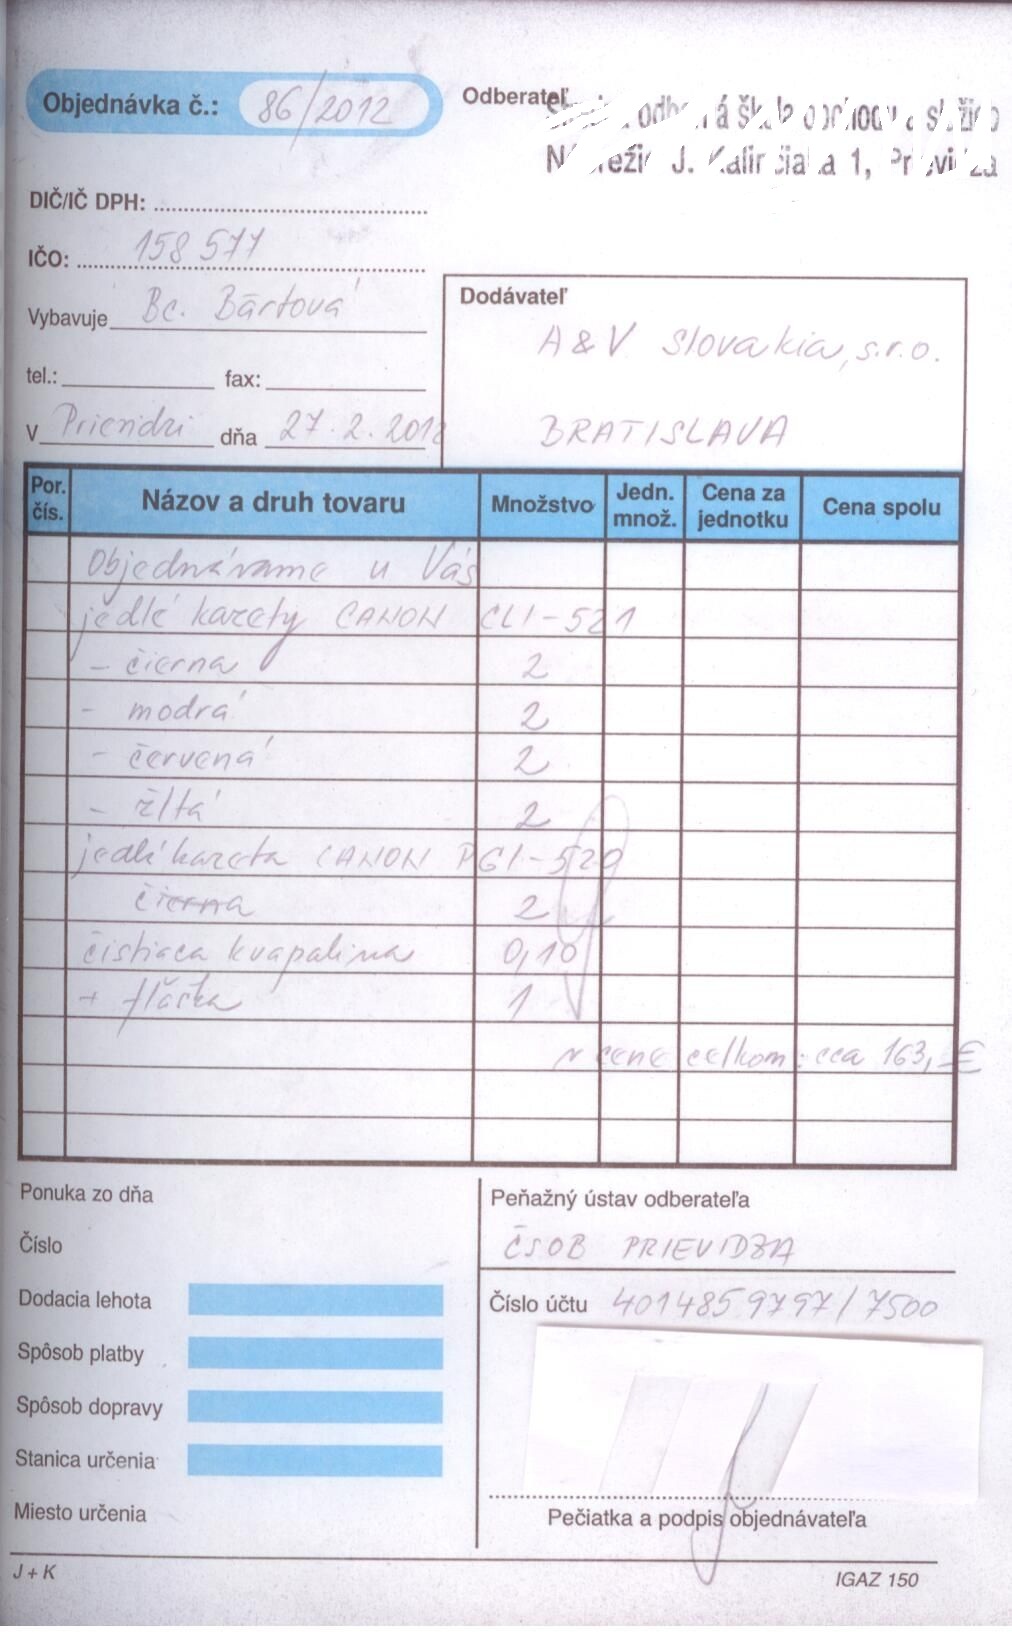 Objednávka č.: 86/2012
Odberateľ
odborná škola obchodu a služieb
Nábrežie J. Kalinčiaka 1, Prievidza
DIČ/IČ DPH:
IČO: 158 577
Vybavuje Bc. Bártová
tel.: fax:
V Prievidzi dňa 27.2.2012
Dodávateľ
A&V Slovakia, s.r.o.
BRATISLAVA
Por. čís. Názov a druh tovaru Množstvo Jedn. množ. Cena za jednotku Cena spolu
Objednávame u Vás
kazety CANON CLI-521
- čierna 2
- modrá 2
- červená 2
- žltá 2
kazeta CANON PGI-520
čierna 2
čistiaca kvapalina 0,10
+ fľaška 1
v cene celkom: cca 163,-€
Ponuka zo dňa
Číslo
Dodacia lehota
Spôsob platby
Spôsob dopravy
Stanica určenia
Miesto určenia
Peňažný ústav odberateľa
ČSOB PRIEVIDZA
Číslo účtu 4014859797/7500
Pečiatka a podpis objednávateľa
J + K
IGAZ 150